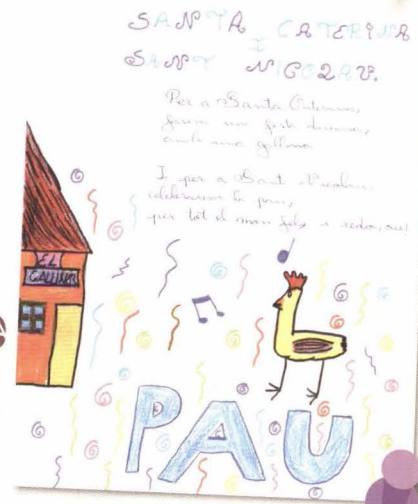 SANTA CATERINA
I
SANT NICOLAU.
Per a Santa Caterina,
farem una festa
amb una gallina
I per a Sant Nicolau
celebrarem la pau,
per tot el mon
EL
GALLINER
PAU